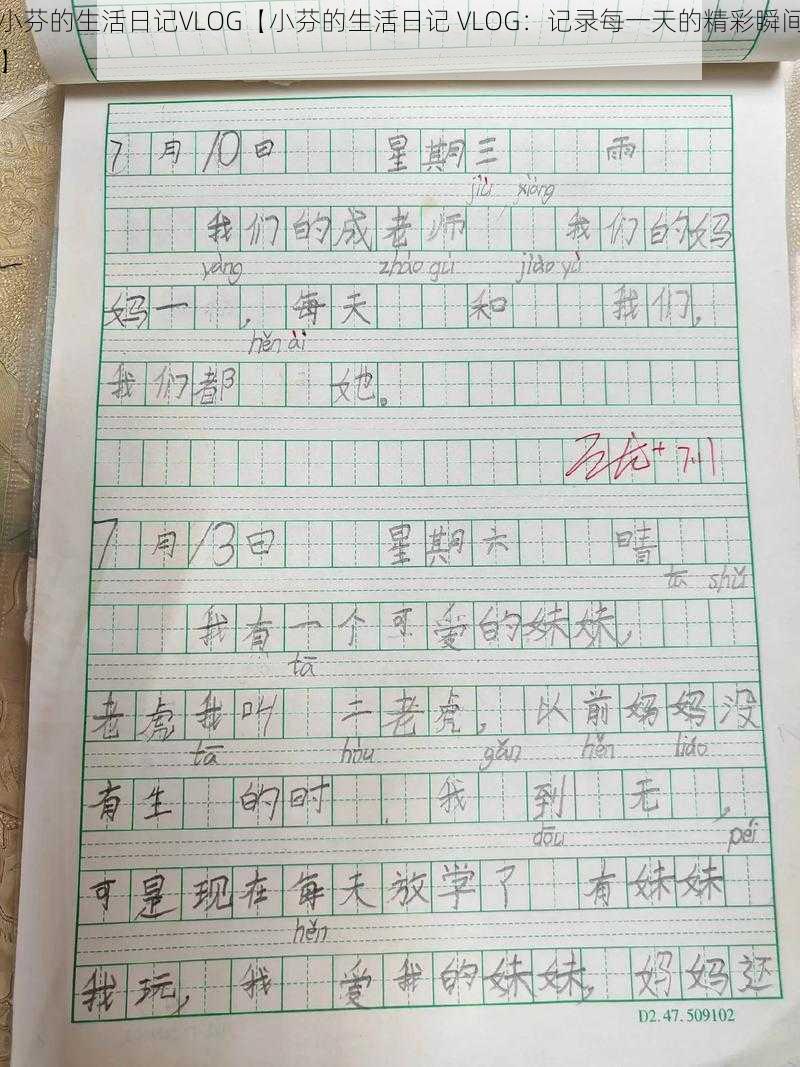 小芬的生活日记VLOG【小芬的生活日记 VLOG：记录每一天的精彩瞬间
】
7月10日 星期三 雨
jiù xiàng
我们的成老师 我们的妈
yàng zhào gù jiāo yù
妈一 ，每天 和 我们，
hěn ài
我们都 她。
7.11
7月13日 星期六 晴
tā shǔ
我有一个可爱的妹妹，
tā
老虎我叫 二老虎，以前妈妈没
tā hòu gǎn hěn liáo
有生 的时 ，我 到 无 ，
dōu péi
可是现在每天放学了 有妹妹
hěn
我玩，我 爱我的妹妹，妈妈还
D2.47.509102